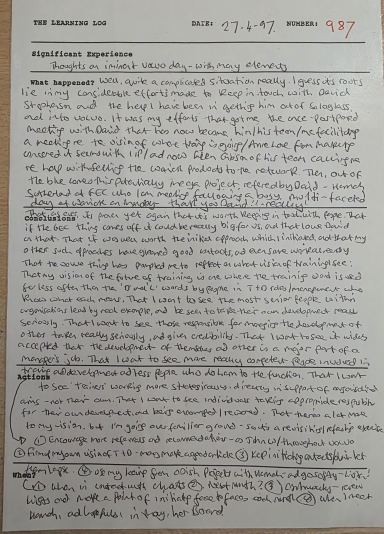 THE LEARNING LOG DATE: 27-4-97. NUMBER: 987
Significant Experience
Thoughts on iminent Volvo day - with many elements
What happened? Well, quite a complicated situation really. I guess its roots
lie in my considerable efforts made to keep in touch with David
Stephenson and the help I have been in getting him out of
and into Volvo. It was my efforts that got me the once-postponed
meeting with David that has now become him/his team/me facilitating
a meeting re to vision of where things is going/
concerned it seems with LIP/ad now Ellen Gibson of his team calling me
re help with selling the Warwick products to the network. Then, out of
the blue comes this potentially mega project, referred by David - Hannah
Sutherland of GEC who I am meeting following a busy, multi-faceted
day at Warwick on Monday. Thank you David!!-really!
Conclusions That as ever its proven yet again that its worth keeping in touch with people. That
if the GEC thing comes off it could be really big for us, and that I owe David
on that. That it was well worth the initial approach which initiated
other such approaches have generated good contacts, and even some work
That the whole thing has prompted me to reflect on what vision of training I see:
That my vision of the future of training is one where the training word is used
far less often than the 'D' and 'L' words by people in T+D roles/management who
know what each means. That I want to see the most senior people within
organisations lead by real example, and be seen to take their own development really
seriously. That I want to see those responsible for managing the development of
others taken really seriously, and given credibility. That I want to see it widely
accepted that the development of themselves and others is a major part of a
manager's job. That I want to see more really competent people involved in
training and development and less people who do harm to the function. That I want
Actions to see trainers working more strategically, directly in support of organisational
aims - not their own. That I want to see individuals taking appropriate responsibility
for their own development, and being encouraged/rewarded. That theres a lot more
to my vision, but I'm going over familiar ground - so its a revisit/refreshing exercise
① Encourage more references and recommendations - as
② Firm up my own vision of T+D - may make a good article ③ Keep
④ Use my being from
When? ① When in contact with clients ② Next month?
and make a point of face to faces each month ④ When I meet
Hannah, and hopefully in